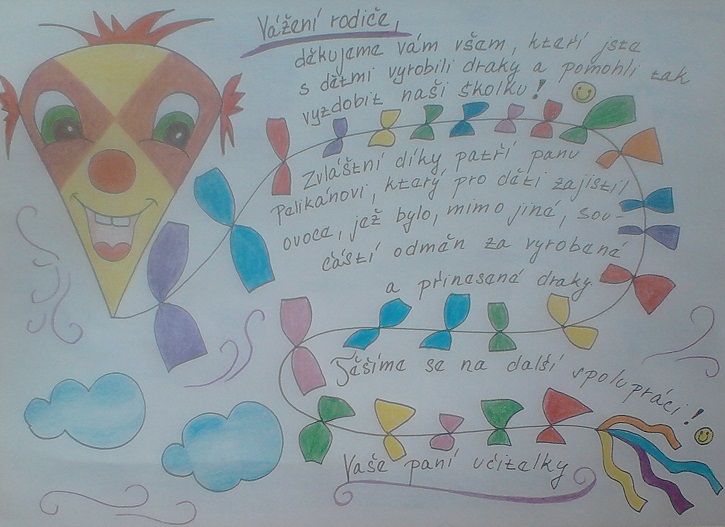 Vážení rodiče,
děkujeme vám všem, kteří jste
s dětmi vyrobili draky a pomohli tak
vyzdobit naši školku!
Zvláštní díky patří panu
Pelikánovi, který pro děti zajistil
ovoce, jež bylo, mimo jiné, sou-
částí odměn za vyrobené
a přinesené draky.
Těšíme se na další spolupráci!
Vaše paní učitelky